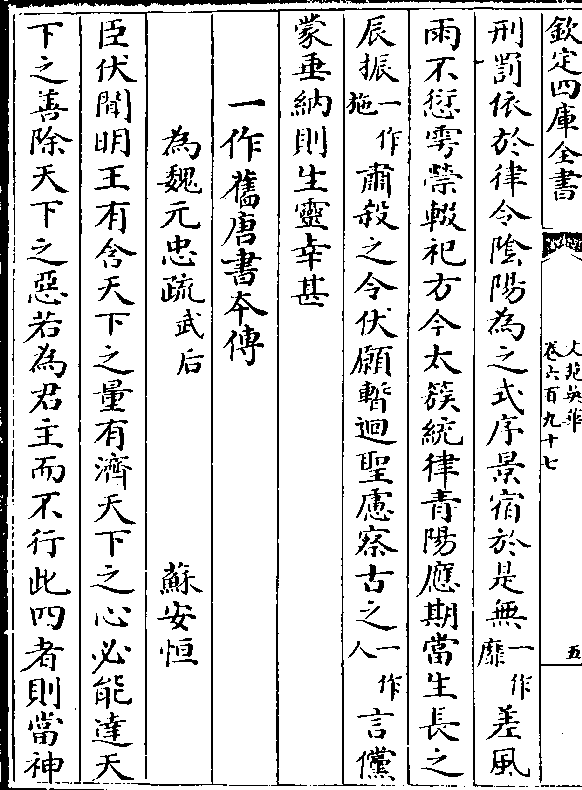 欽定四庫全書
文苑英華
卷六百九十七
五
刑罰依於律令陰陽為之式序景宿於是無一作靡差風
雨不愆雩禜輟祀方今太簇統律青陽應期當生長之
辰振一作施肅殺之令伏願暫迴聖慮察古之一作人言儻
蒙垂納則生靈幸甚
一作舊唐書本傳
為魏元忠疏武后
蘇安恒
臣伏聞明王有含天下之量有濟天下之心必能達天
下之善除天下之惡若為君主而不行此四者則當神